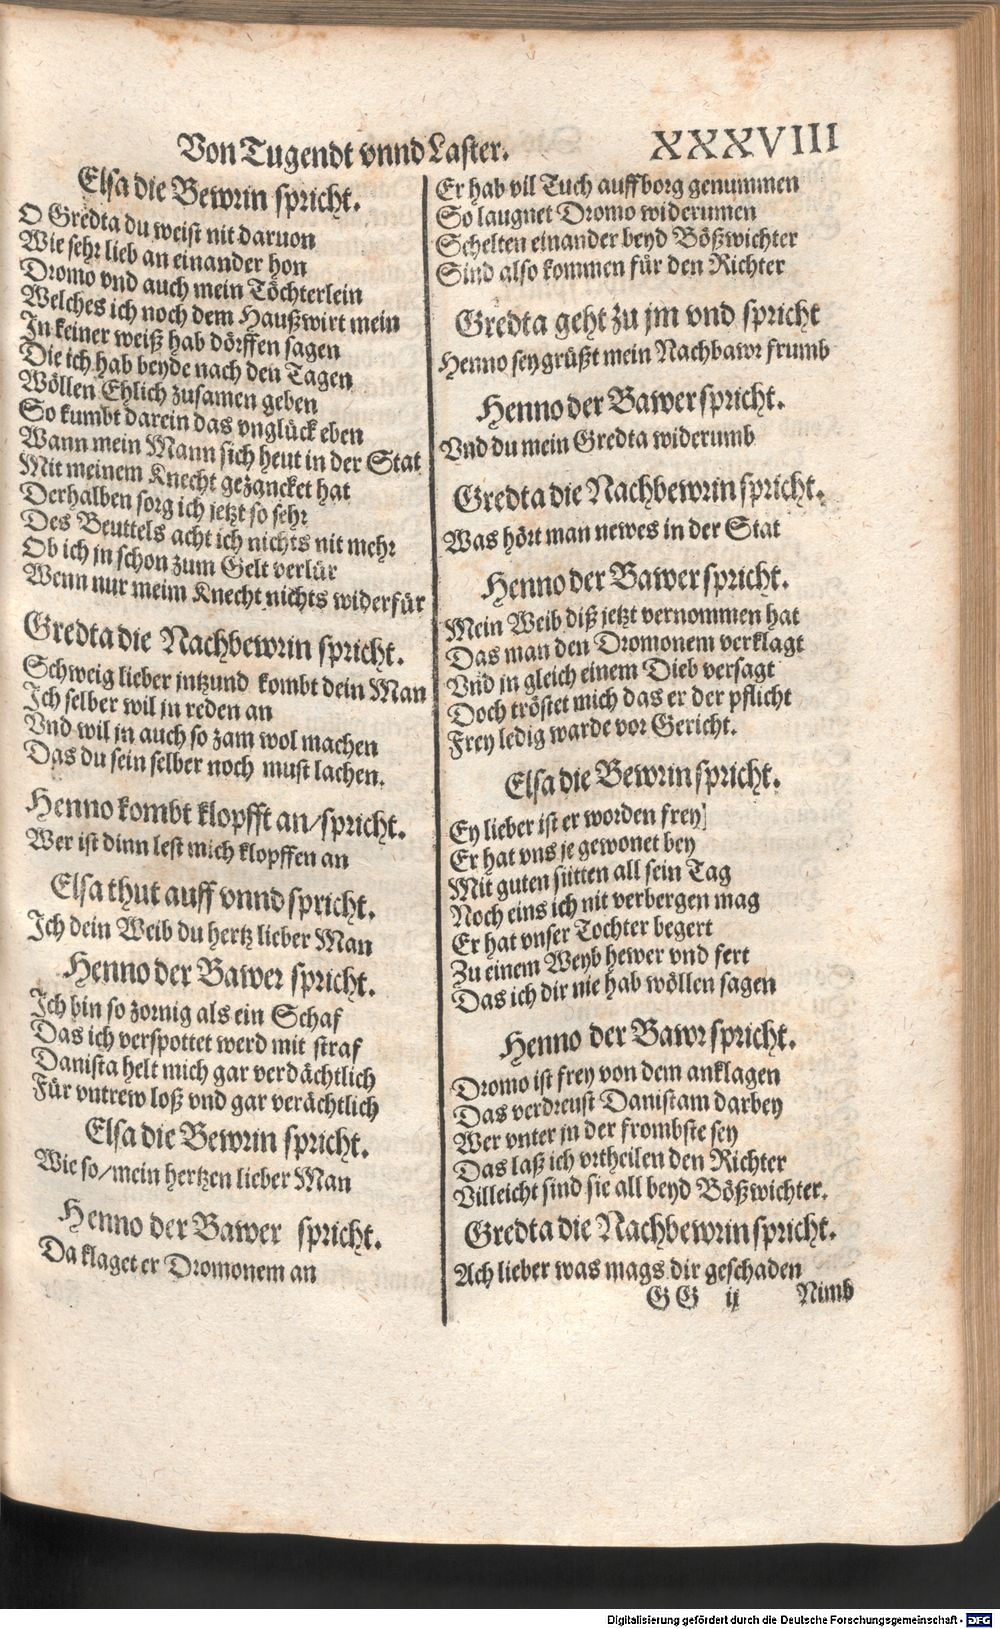 Von Tugendt vnnd Laster. XXXVIII
Elsa die Bewrin spricht.
O Gredta du weist nit daruon
Wie sehr lieb an einander hon
Dromo vnd auch mein Töchterlein
Welches ich noch dem Haußwirt mein
In keiner weiß hab dörffen sagen
Die ich hab beyde nach den Tagen
Wöllen Ehlich zusamen geben
So kumbt darein das vnglück eben
Wann mein Mann sich heut in der Stat
Mit meinem Knecht gezancket hat
Derhalben sorg ich jetzt so sehr
Des Beuttels acht ich nichts nit mehr
Ob ich jn schon zum Gelt verlür
Wenn nur meim Knecht nichts widerfür
Gredta die Nachbewrin spricht.
Schweig lieber jntzund kombt dein Man
Ich selber wil jn reden an
Vnd wil jn auch so zam wol machen
Das du sein selber noch must lachen.
Henno kombt klopfft an/spricht.
Wer ist dinn lest mich klopffen an
Elsa thut auff vnnd spricht.
Ich dein Weib du hertz lieber Man
Henno der Bawer spricht.
Ich bin so zornig als ein Schaf
Das ich verspottet werd mit straf
Danista helt mich gar verdächtlich
Für vntrew loß vnd gar verächtlich
Elsa die Bewrin spricht.
Wie so/mein hertzen lieber Man
Henno der Bawer spricht.
Da klaget er Dromonem an
Er hab vil Tuch auff borg genummen
So laugnet Dromo widerumen
Schelten einander beyd Bößwichter
Sind also kommen für den Richter
Gredta geht zu jm vnd spricht
Henno sey grüßt mein Nachbawr frumb
Henno der Bawer spricht.
Vnd du mein Gredta widerumb
Gredta die Nachbewrin spricht.
Was hört man newes in der Stat
Henno der Bawer spricht.
Mein Weib diß jetzt vernommen hat
Das man den Dromonem verklagt
Vnd jn gleich einem Dieb versagt
Doch tröstet mich das er der pflicht
Frey ledig warde vor Gericht.
Elsa die Bewrin spricht.
Ey lieber ist er worden frey
Er hat vns je gewonet bey
Mit guten sitten all sein Tag
Noch eins ich nit verbergen mag
Er hat vnser Tochter begert
Zu einem Weyb hewer vnd fert
Das ich dir nie hab wöllen sagen
Henno der Bawr spricht.
Dromo ist frey von dem anklagen
Das verdreust Danistam darbey
Wer vnter jn der frombste sey
Das laß ich vrtheilen den Richter
Villeicht sind sie all beyd Bößwichter.
Gredta die Nachbewrin spricht.
Ach lieber was mags dir geschaden
GG ij Nimb
Digitalisierung gefördert durch die Deutsche Forschungsgemeinschaft - DFG